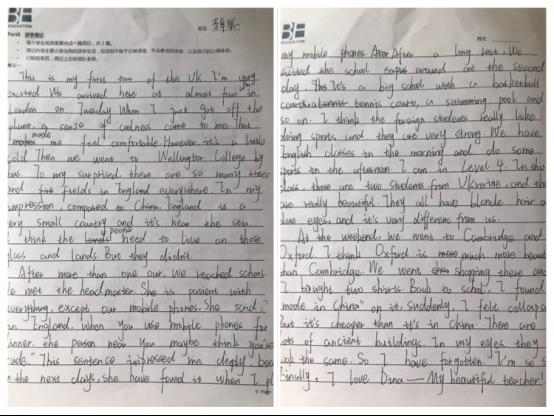 EDUCATION
姓名:
This is my first tour of the UK I'm very
excited. We arrived here at almost four in
London on Tuesday When I just got off the
plane, a sense of coolness came to me that
made
makes me feel comfortable. However, it's a little
cold Then we went to Wellington College by
bus. To my surprised, there are so many trees
and fields in England everywhere In my
impression, composed to China, England is a
very small country and it's near the sea
people
I think the need to live on these
and lands. But they didn't
After more than one our. We reached school
We met the headmaster She is patient with
everything except our mobile phones. She said:"
In England, When you use mobile phones for
dinner the person near you maybe think you're
rude." This sentence impressed me deeply, because
in the next days, she have found it when I
EDUCATION
姓名:
my mobile phones. After a long rest. We
visited the school around at the second
day. It's a big school with a basketball
tennis court, a swimming pool and
so on. I think the foreign students really like
doing sports and they are very strong We have
English classes in the morning and do some
sports in the afternoon I am in Level 4. In this
class, there are two students from Ukraine, and they
are really beautiful They all have blonde hair and
blue eyes, and it's very different from us.
At the weekend, we went to Cambridge and
Oxford. I think Oxford is much more
than Cambridge. We went shopping there and
I bought two shirts. Back to school, I found
"made in China" on it, suddenly, I felt
But it's cheaper than it's in China. There are
lots of ancient buildings. In my eyes, they
the same. So I have forgotten. I'm so
Finally, I love Dana — My beautiful teacher!